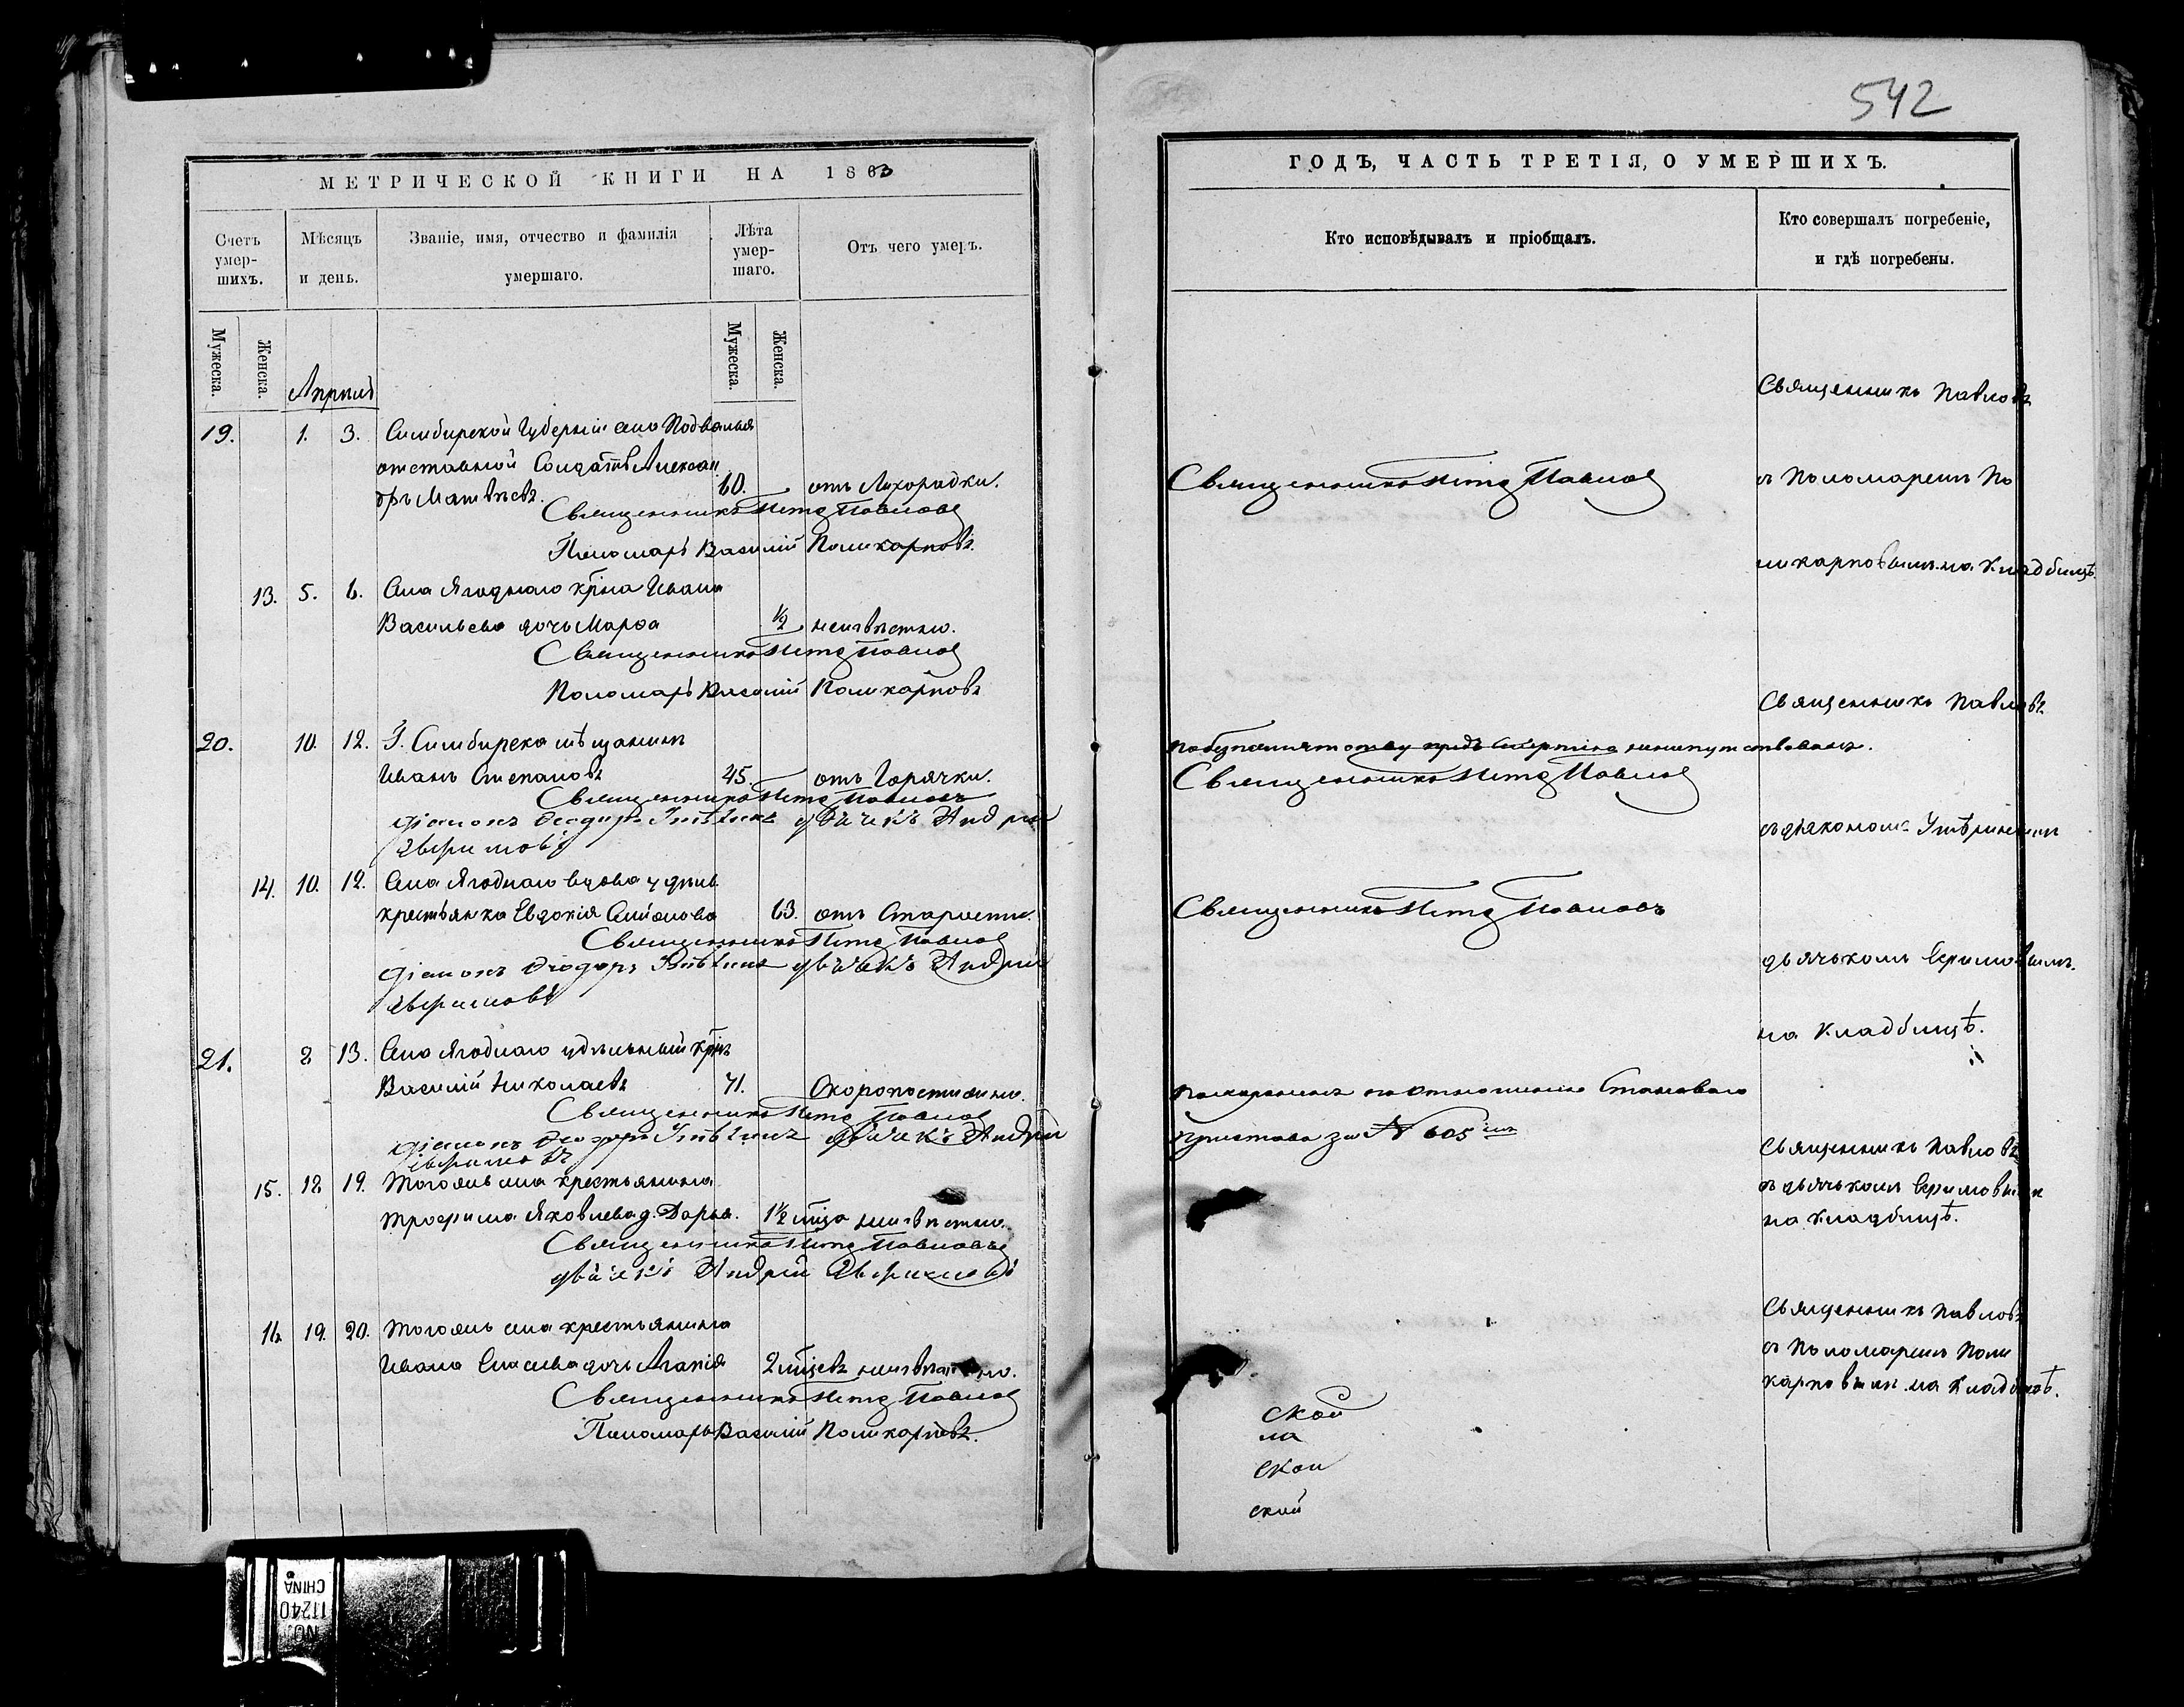 542
МЕТРИЧЕСКОЙ КНИГИ НА 1863
Счетъ умер-
шихъ.
Мѣсяцъ
и день.
Званіе, имя, отчество и фамилія
умершаго.
Лѣта
умер-
шаго.
Отъ чего умеръ.
Мужеска.
Женска.
Апрѣль
Мужеска.
Женска.
19. 1. 3. Симбирской Губерніи села Подвалья
отставной Солдатъ Алексан
дръ Матвѣевъ. 60. отъ Лихорадки.
Священникъ Петръ Павловъ
Пономарь Василій Поликарповъ.
13. 5. 6. Села Ягоднаго крѣна Ивана
Васильева дочь Марѳа ½ неизвѣстно.
Священникъ Петръ Павловъ
Пономарь Василій Поликарповъ
20. 10. 12. Г. Симбирска мѣщанинъ
Иванъ Степановъ 45. отъ Горячки.
Священникъ Петръ Павловъ
діаконъ Ѳеодоръ дьячекъ Андрей
14. 10. 12. Села Ягоднаго вдова удѣльн.
крестьянка Евдокія Симонова 63. отъ Старости.
Священникъ Петръ Павловъ
діаконъ Ѳеодоръ дьячекъ Андрей
21. 2 13. Села Ягоднаго удѣльный крнъ
Василій Николаевъ 71. Скоропостижно.
Священникъ Петръ Павловъ
діаконъ Ѳеодоръ дьячекъ Андрей
15. 12 19. Тогожъ села крестьянина
Трофима Яковлева д. Дарья. 1½ мѣца неизвѣстно.
Священникъ Петръ Павловъ
дьячекъ Андрей
16. 19. 20. Тогожъ села крестьянина
Ивана дочь Агапія 2 мѣцевъ неизвѣстно.
Священникъ Петръ Павловъ
Пономарь Василій Поликарповъ.
ГОДЪ, ЧАСТЬ ТРЕТІЯ, О УМЕРШИХЪ.
Кто исповѣдывалъ и пріобщалъ.
Кто совершалъ погребеніе,
и гдѣ погребены.
Священникъ Павловъ
Священникъ Петръ Павловъ
съ Пономаремъ По
ликарповымъ на Кладбищѣ.
Священникъ Павловъ.
предъ Смертію
Священникъ Петръ Павловъ
съ діякономъ
Священникъ Петръ Павловъ
дьячькомъ
на Кладбищѣ.
похороненъ по отношенію Становаго
Пристава за № 605
Священникъ Павловъ
съ дьячькомъ
на Кладбищѣ.
Священникъ Павловъ
съ Пономаремъ Поли
карповымъ на Кладбищѣ.
ской
ла
ской
ский
NO. 11240
CHINA